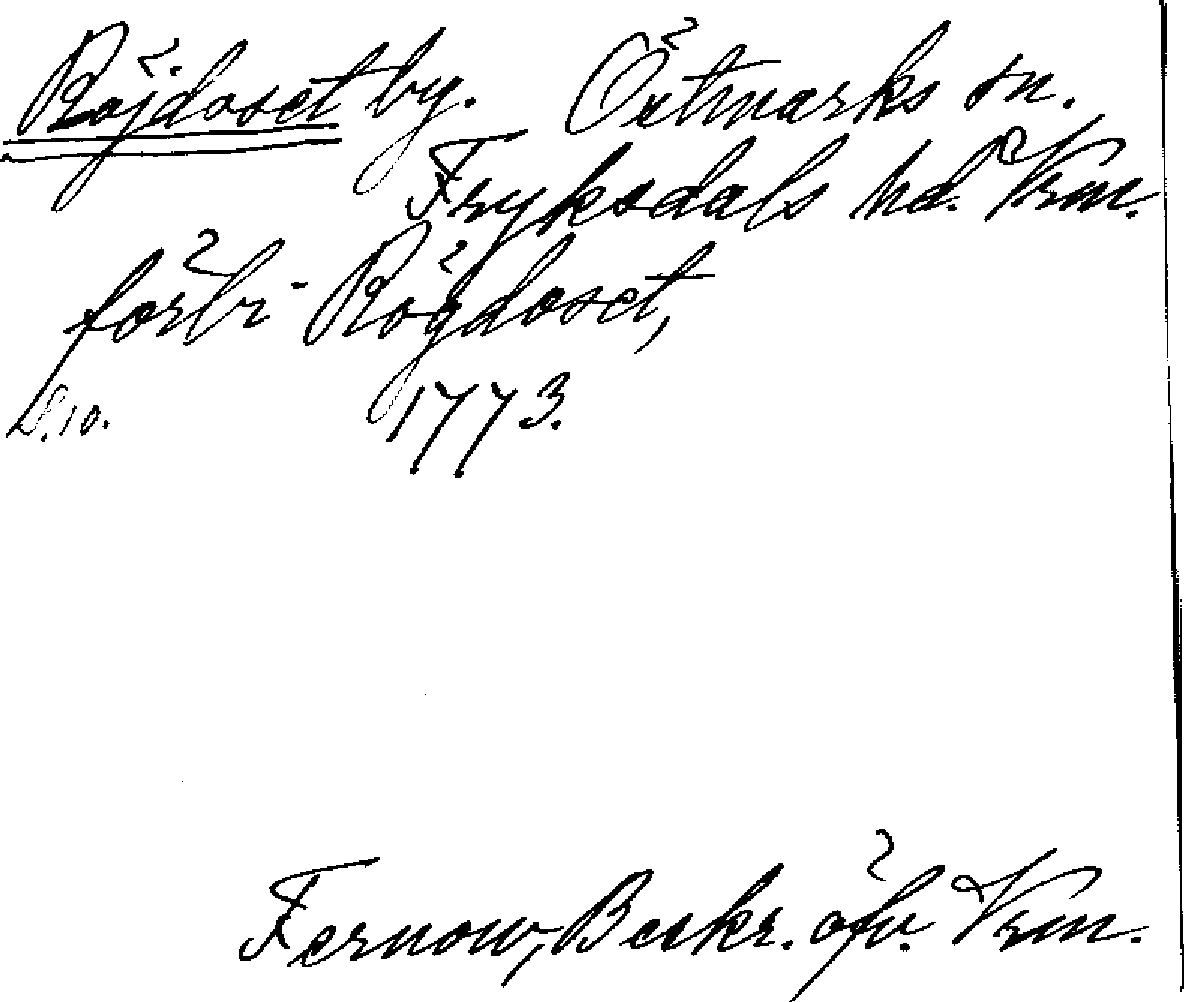 Röjdoset by. Östmarks sn.
Fryksdals hd. Vrm.
förbi Rögdoset,
S. 10. 1773.
Fernow, Beskr. öfv. Vrm.